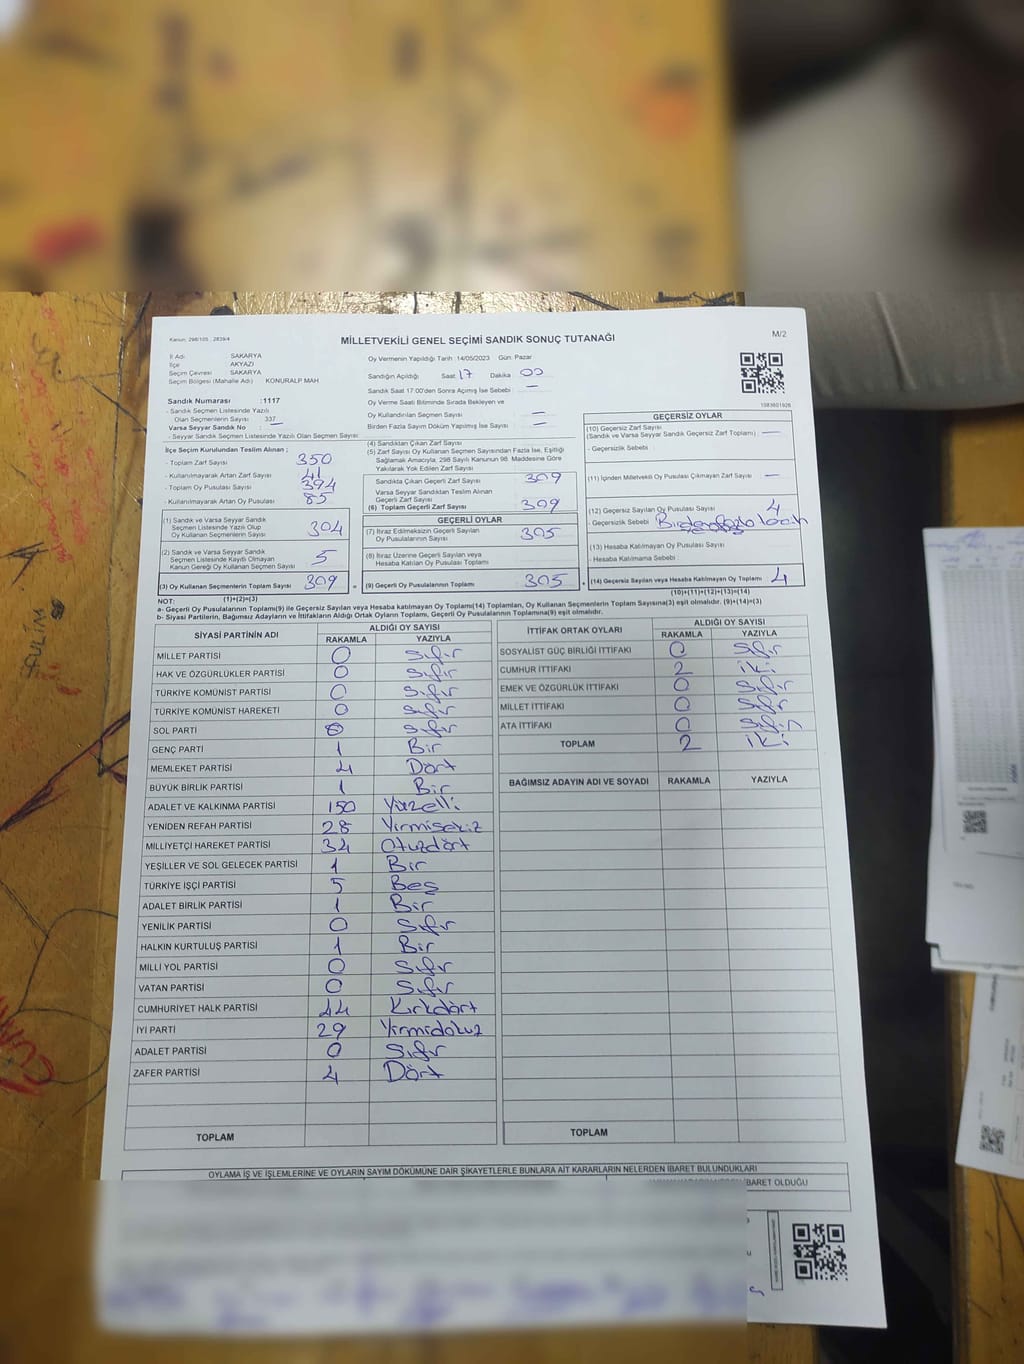 Kanun; 298/105 ; 2839/4
MİLLETVEKİLİ GENEL SEÇİMİ SANDIK SONUÇ TUTANAĞI
M/2
İl Adı SAKARYA
İlçe AKYAZI
Seçim Çevresi SAKARYA
Seçim Bölgesi (Mahalle Adı) KONURALP MAH
Sandık Numarası :1117
- Sandık Seçmen Listesinde Yazılı
Olan Seçmenlerin Sayısı : 337
Varsa Seyyar Sandık No : —
- Seyyar Sandık Seçmen Listesinde Yazılı Olan Seçmen Sayısı:
Oy Vermenin Yapıldığı Tarih :14/05/2023 Gün: Pazar
Sandığın Açıldığı Saat 17 Dakika 00
Sandık Saat 17:00'den Sonra Açılmış İse Sebebi : —
Oy Verme Saati Bitiminde Sırada Bekleyen ve
Oy Kullandırılan Seçmen Sayısı : —
Birden Fazla Sayım Döküm Yapılmış İse Sayısı : —
İlçe Seçim Kurulundan Teslim Alınan ;
- Toplam Zarf Sayısı : 350
- Kullanılmayarak Artan Zarf Sayısı : 41
- Toplam Oy Pusulası Sayısı : 394
- Kullanılmayarak Artan Oy Pusulası : 85
(1) Sandık ve Varsa Seyyar Sandık
Seçmen Listesinde Yazılı Olup
Oy Kullanan Seçmenlerin Sayısı 304
(2) Sandık ve Varsa Seyyar Sandık
Seçmen Listesinde Kayıtlı Olmayan
Kanun Gereği Oy Kullanan Seçmen Sayısı 5
(3) Oy Kullanan Seçmenlerin Toplam Sayısı 309
(1)+(2)=(3)
(4) Sandıktan Çıkan Zarf Sayısı
(5) Zarf Sayısı Oy Kullanan Seçmen Sayısından Fazla İse, Eşitliği
Sağlamak Amacıyla, 298 Sayılı Kanunun 98. Maddesine Göre
Yakılarak Yok Edilen Zarf Sayısı
Sandıkta Çıkan Geçerli Zarf Sayısı 309
Varsa Seyyar Sandıktan Teslim Alınan
Geçerli Zarf Sayısı
(6) Toplam Geçerli Zarf Sayısı 309
GEÇERLİ OYLAR
(7) İtiraz Edilmeksizin Geçerli Sayılan
Oy Pusulalarının Sayısı 305
(8) İtiraz Üzerine Geçerli Sayılan veya
Hesaba Katılan Oy Pusulası Toplamı
= (9) Geçerli Oy Pusulalarının Toplamı 305
1083801926
GEÇERSİZ OYLAR
(10) Geçersiz Zarf Sayısı
(Sandık ve Varsa Seyyar Sandık Geçersiz Zarf Toplamı) —
- Geçersizlik Sebebi :
(11) İçinden Milletvekili Oy Pusulası Çıkmayan Zarf Sayısı —
(12) Geçersiz Sayılan Oy Pusulası Sayısı 4
- Geçersizlik Sebebi : Birden fazla
(13) Hesaba Katılmayan Oy Pusulası Sayısı
- Hesaba Katılmama Sebebi :
+ (14) Geçersiz Sayılan veya Hesaba Katılmayan Oy Toplamı 4
(10)+(11)+(12)+(13)=(14)
NOT:
a- Geçerli Oy Pusulalarının Toplamı(9) ile Geçersiz Sayılan veya Hesaba katılmayan Oy Toplamı(14) Toplamları, Oy Kullanan Seçmenlerin Toplam Sayısına(3) eşit olmalıdır. (9)+(14)=(3)
b- Siyasi Partilerin, Bağımsız Adayların ve İttifakların Aldığı Ortak Oyların Toplamı, Geçerli Oy Pusulalarının Toplamına(9) eşit olmalıdır.
SİYASİ PARTİNİN ADI ALDIĞI OY SAYISI
RAKAMLA YAZIYLA
MİLLET PARTİSİ 0 Sıfır
HAK VE ÖZGÜRLÜKLER PARTİSİ 0 Sıfır
TÜRKİYE KOMÜNİST PARTİSİ 0 Sıfır
TÜRKİYE KOMÜNİST HAREKETİ 0 Sıfır
SOL PARTİ 0 Sıfır
GENÇ PARTİ 1 Bir
MEMLEKET PARTİSİ 4 Dört
BÜYÜK BİRLİK PARTİSİ 1 Bir
ADALET VE KALKINMA PARTİSİ 150 Yüzelli
YENİDEN REFAH PARTİSİ 28 Yirmisekiz
MİLLİYETÇİ HAREKET PARTİSİ 34 Otuzdört
YEŞİLLER VE SOL GELECEK PARTİSİ 1 Bir
TÜRKİYE İŞÇİ PARTİSİ 5 Beş
ADALET BİRLİK PARTİSİ 1 Bir
YENİLİK PARTİSİ 0 Sıfır
HALKIN KURTULUŞ PARTİSİ 1 Bir
MİLLİ YOL PARTİSİ 0 Sıfır
VATAN PARTİSİ 0 Sıfır
CUMHURİYET HALK PARTİSİ 44 Kırkdört
İYİ PARTİ 29 Yirmidokuz
ADALET PARTİSİ 0 Sıfır
ZAFER PARTİSİ 4 Dört
TOPLAM
İTTİFAK ORTAK OYLARI ALDIĞI OY SAYISI
RAKAMLA YAZIYLA
SOSYALİST GÜÇ BİRLİĞİ İTTİFAKI 0 Sıfır
CUMHUR İTTİFAKI 2 iki
EMEK VE ÖZGÜRLÜK İTTİFAKI 0 Sıfır
MİLLET İTTİFAKI 0 Sıfır
ATA İTTİFAKI 0 Sıfır
TOPLAM 2 iki
BAĞIMSIZ ADAYIN ADI VE SOYADI RAKAMLA YAZIYLA
TOPLAM
OYLAMA İŞ VE İŞLEMLERİNE VE OYLARIN SAYIM DÖKÜMÜNE DAİR ŞİKAYETLERLE BUNLARA AİT KARARLARIN NELERDEN İBARET BULUNDUKLARI
İBARET OLDUĞU